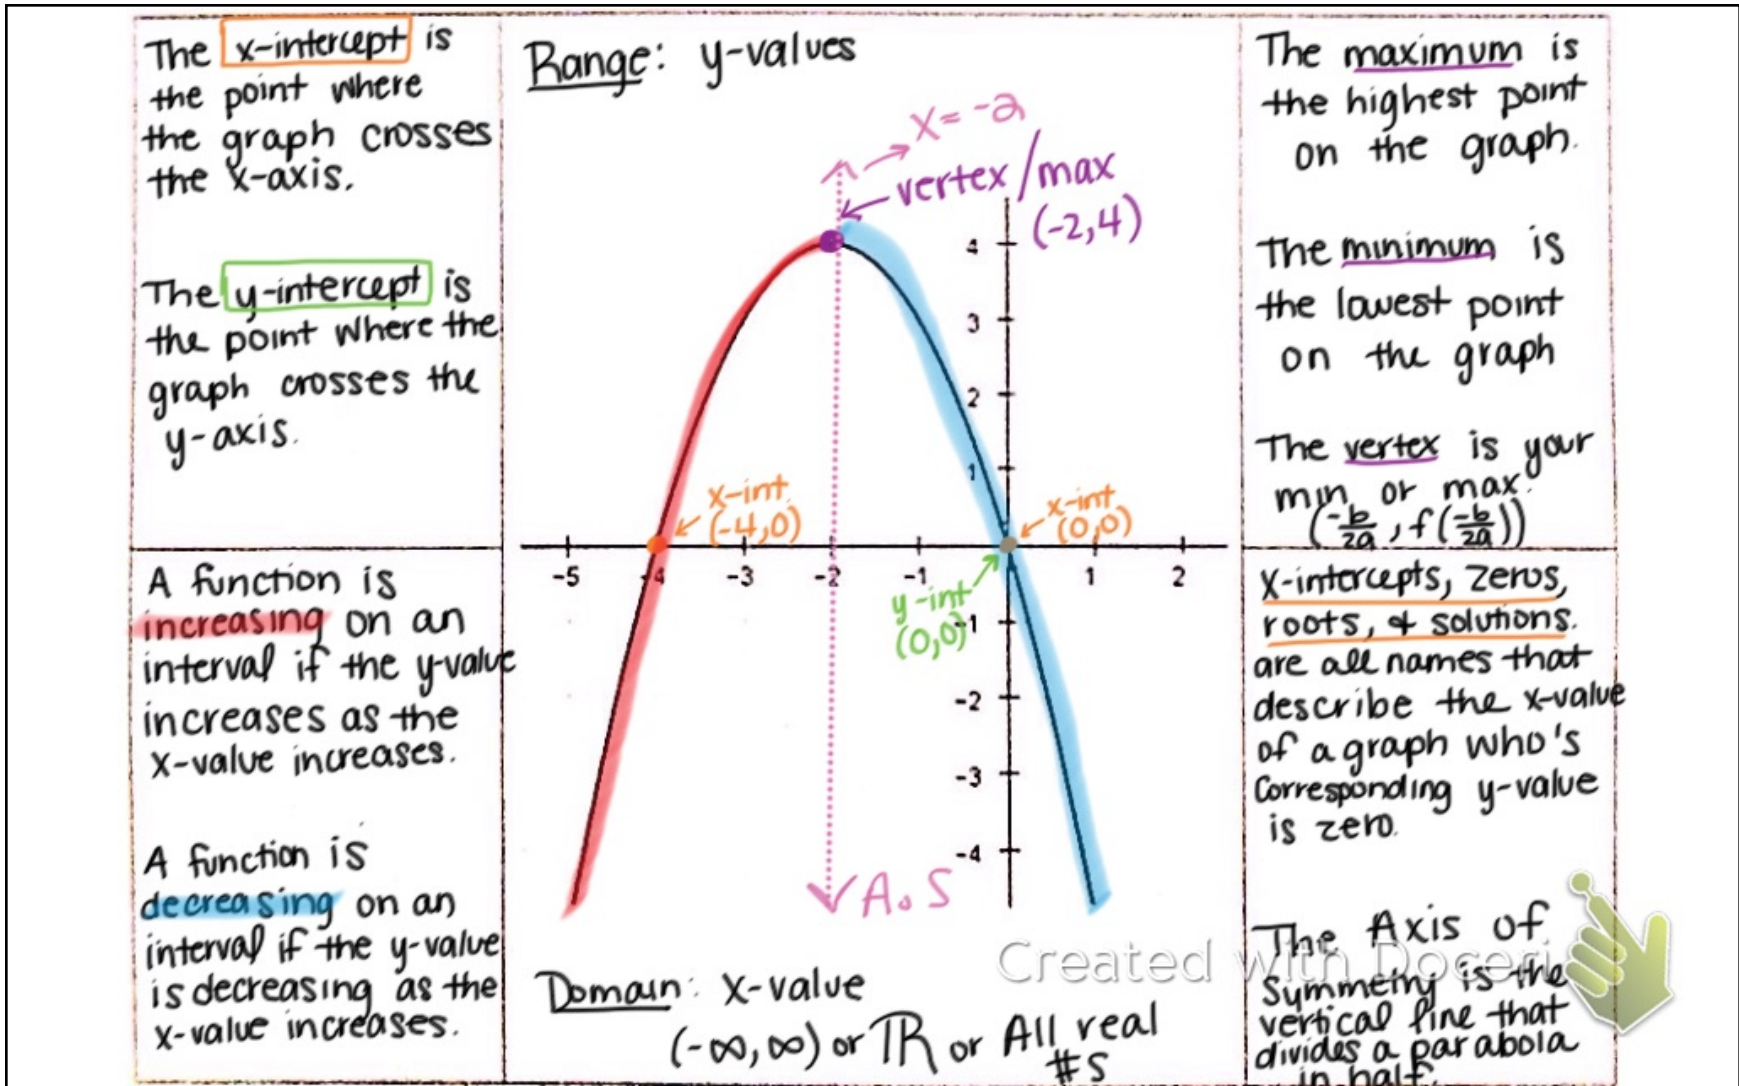 The x-intercept is
the point where
the graph crosses
the x-axis.
The y-intercept is
the point where the
graph crosses the
y-axis.
A function is
increasing on an
interval if the y-value
increases as the
x-value increases.
A function is
decreasing on an
interval if the y-value
is decreasing as the
x-value increases.
Range: y-values
x = -2
vertex/max
(-2,4)
4
3
2
1
x-int
(-4,0)
x-int
(0,0)
-5 -4 -3 -2 -1 1 2
y-int
(0,0)
-1
-2
-3
-4
A.S
Domain: x-value
(-∞,∞) or ℝ or All real
#s
The maximum is
the highest point
on the graph.
The minimum is
the lowest point
on the graph
The vertex is your
min or max.
(-b/2a, f(-b/2a))
x-intercepts, zeros,
roots, & solutions.
are all names that
describe the x-value
of a graph who's
corresponding y-value
is zero.
The Axis of
Symmetry is the
vertical line that
divides a parabola
in half.
Created with Doceri